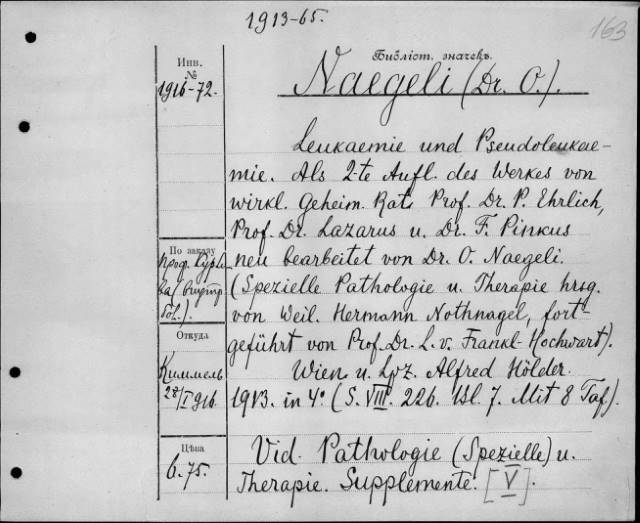 1913-65.
163
Библіот. значекъ.
Инв.
№
1916-72.
Naegeli (Dr. O.).
Leukaemie und Pseudoleukae-
mie. Als 2-te Aufl. des Werkes von
wirkl. Geheim. Rat. Prof. Dr. P. Ehrlich,
Prof. Dr. Lazarus u. Dr. F. Pinkus
neu bearbeitet von Dr. O. Naegeli.
(Spezielle Pathologie u. Therapie hrsg.
von Weil. Hermann Nothnagel, fort-
geführt von Prof. Dr. L. v. Frankl-Hochwart).
Wien u. Lpz. Alfred Hölder.
1913. in 4° (S. VIII. 226. Bl. 7. Mit 8 Taf).
Vid. Pathologie (Spezielle) u.
Therapie. Supplemente. [V].
По заказу
проф. Курло-
ва (внутр.
бол.).
Откуда
Киммель
28/I 916.
Цѣна
6.75.